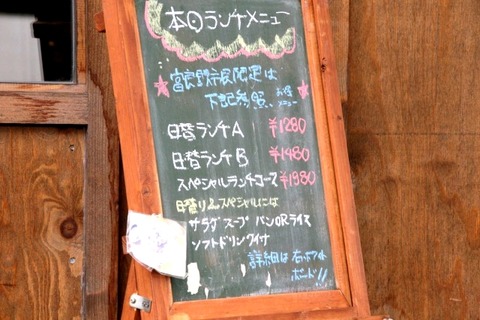 本日ランチメニュー
富良野市展開定は
下記参照 お昼メニュー
日替ランチA ¥1280
日替ランチB ¥1480
スペシャルランチコース ¥1980
日替り&スペシャルには
サラダ スープ パンORライス
ソフトドリンク付
詳細は
ボード!!